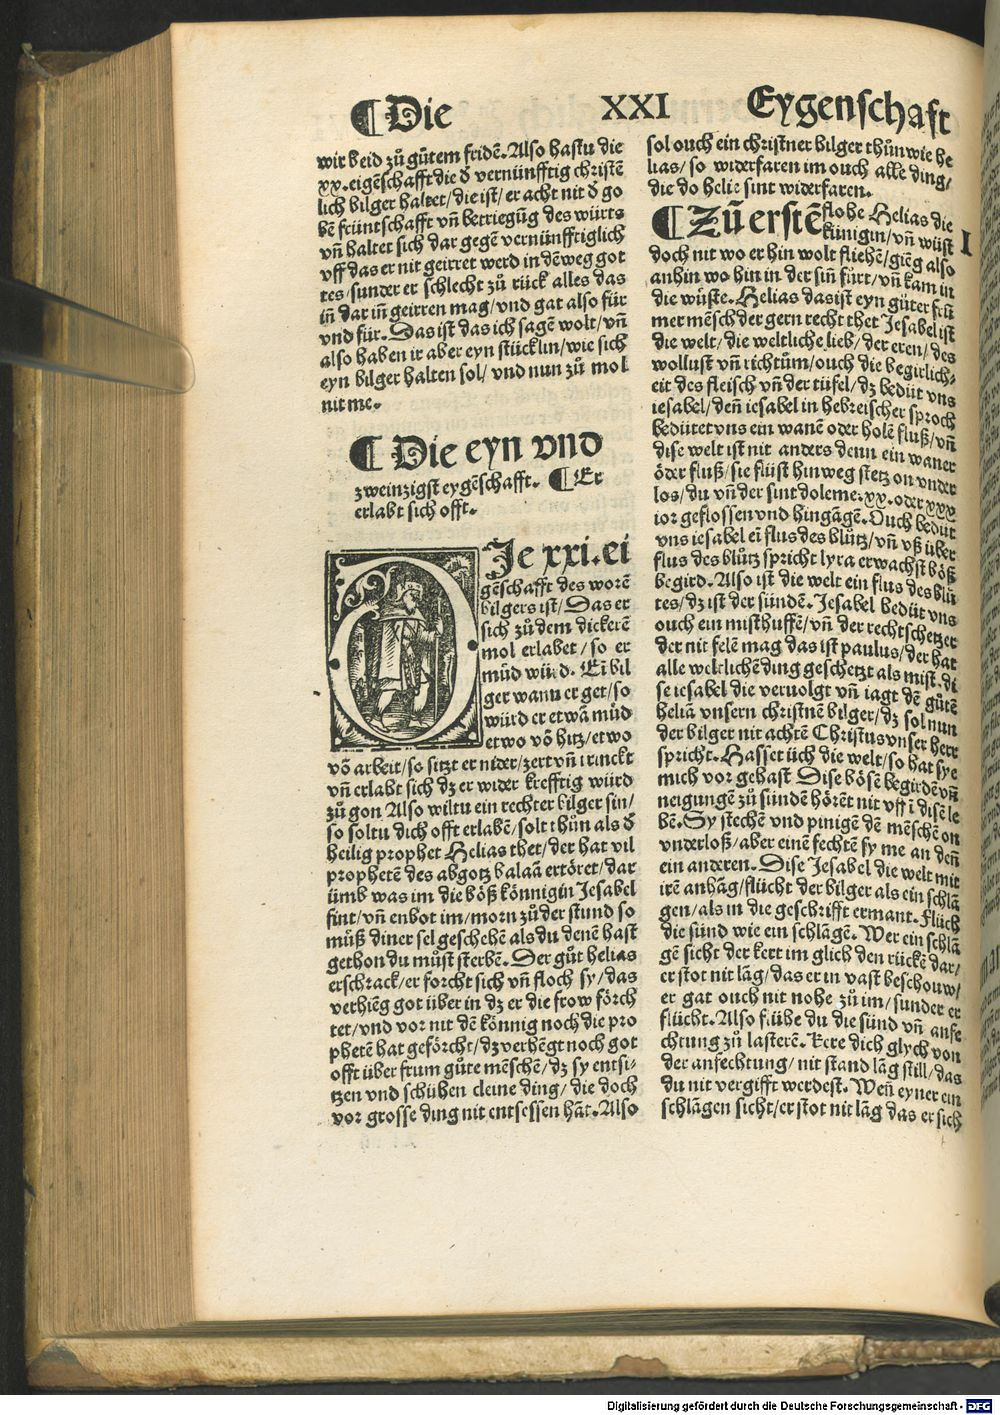 ¶ Die XXI Eygenschaft
wir beid zů gůtem fridē. Also hastu die
xx. eigēschafft die d̕ vernünfftig christē
lich bilger haltet/die ist/er acht nit d̕ go
bē früntschafft vñ betriegūg des würts
vñ haltet sich dar gegē vernünfftiglich
vff das er nit geirret werd in dē weg got
tes/sunder er schlecht zů rück alles das
iñ dar iñ geirren mag/vnd gat also für
vnd für. Das ist das ich sagē wolt/vñ
also haben ir aber eyn stücklin/wie sich
eyn bilger halten sol/vnd nun zů mol
nit me.
¶ Die eyn vnd
zweinzigst eygēschafft. ¶ Er
erlabt sich offt.
DJe xxi. ei
gēschafft des worē
bilgers ist/Das er
sich zů dem dickerē
mol erlabet/so er
müd würd. Eī bil
ger wann er get/so
würd er etwā müd
etwo vō hitz/etwo
vō arbeit/so sitzt er nider/zert vñ trinckt
vñ erlabt sich dz er wider krefftig würd
zů gon Also wiltu ein rechter bilger sin/
so soltu dich offt erlabē/solt thůn als d̕
heilig prophet Helias thet/der hat vil
prophetē des abgotz balaā ertöret/dar
ümb was im die böß könnigin Jesabel
fint/vñ enbot im/morn zů der stund so
můß diner sel geschehē als du denē hast
gethon du můst sterbē. Der gůt helias
erschrack/er forcht sich vñ floch sy/das
verhiēg got über in dz er die frow förch
tet/vnd vor nit dē könnig noch die pro
phetē hat geförcht/dz verhēgt noch got
offt über frum gůte mēschē/dz sy entsi-
tzen vnd schühen cleine ding/die doch
vor grosse ding nit entsessen hāt. Also
sol ouch ein christner bilger thůn wie he
lias/so widerfaren im ouch alle ding/
die do helie sint widerfaren.
¶ Zů erstē flohe Helias die
künigin/vñ wüst
I
doch nit wo er hin wolt fliehē/giēg also
anhin wo hin in der siñ fůrt/vñ kam in
die wüste. Helias das ist eyn gůter frū
mer mēsch der gern recht thet Jesabel ist
die welt/die weltliche lieb/der eren/des
wollust vñ richtům/ouch die begirlich-
eit des fleisch vñ der tüfel/dz bedüt vns
iesabel/deñ iesabel in hebreischer sproch
bedütet vns ein wanē oder holē fluß/vñ
dise welt ist nit anders denn ein waner
öder fluß/sie flüst hinweg stetz on vnder
los/du vñ der sint do leme. xx. oder xxx
ior geflossen vnd hingāgē. Ouch bedüt
vns iesabel eī flus des blůtz/vñ vß über
flus des blůtz spricht lyra erwachst böß
begird. Also ist die welt ein flus des blů
tes/dz ist der sündē. Jesabel bedüt vns
ouch ein misthuffē/vñ der recht schetzer
der nit felē mag das ist paulus/der hat
alle weltlichē ding geschetzt als mist. di
se iesabel die veruolgt vñ iagt dē gůtē
heliā vnsern christnē bilger/dz sol nun
der bilger nit achtē Christus vnser herr
spricht. Hasset üch die welt/so hat sye
mich vor gehast Dise bösē begirdē vñ
neigungē zů sündē hörēt nit vff ī disē le
bē. Sy stechē vnd pinigē dē mēschē on
vnderloß/aber einē fechtē sy me an deñ
ein anderen. Dise Jesabel die welt mit
irē anhāg/flücht der bilger als ein schlā
gen/als in die geschrifft ermant. Flüch
die sünd wie ein schlāgē. Wer ein schlā
gē sicht der kert im glich den rückē dar/
er stot nit lāg/das er in vast beschouw/
er gat ouch nit nohe zů im/sunder er
flücht. Also flühe du die sünd vñ anfe
chtung zů lasterē. Kere dich glych von
der anfechtung/nit stand lāg still/das
du nit vergifft werdest. Weñ eyner ein
schlāgen sicht/er stot nit lāg das er sich
Digitalisierung gefördert durch die Deutsche Forschungsgemeinschaft - DFG